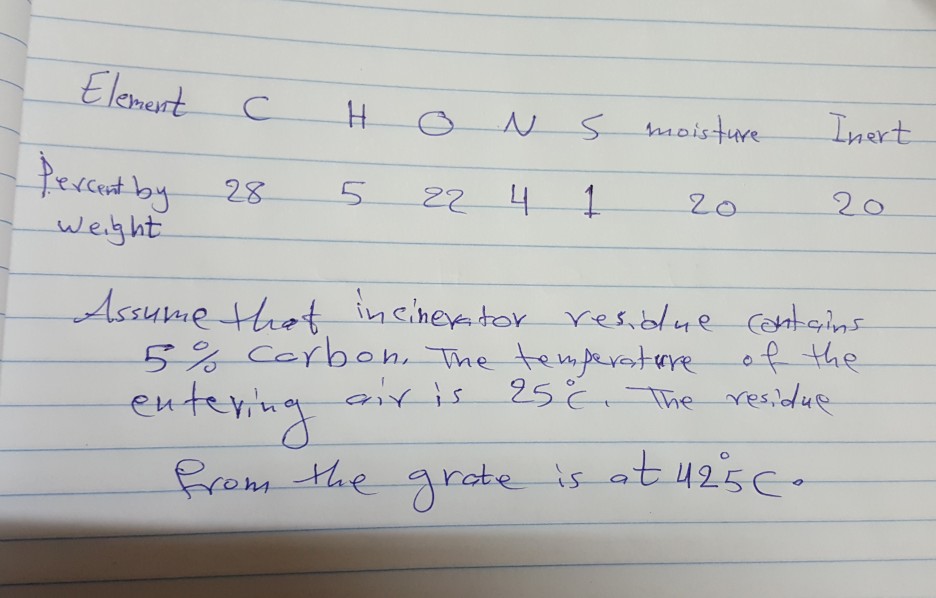 Element C H O N S moisture Inert
Percent by weight 28 5 22 4 1 20 20
Assume that incinerator residue contains
5% carbon. The temperature of the
entering air is 25°C. The residue
from the grate is at 425°C.